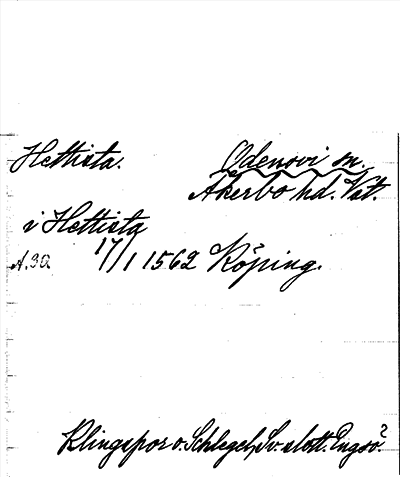 Hettista. Odenovi sn.
Åkerbo hd. Vst.
i Hettista
A.30 17/1 1562 Köping.
Klingspor o. Schlegel, Sv. slott. Engsö?